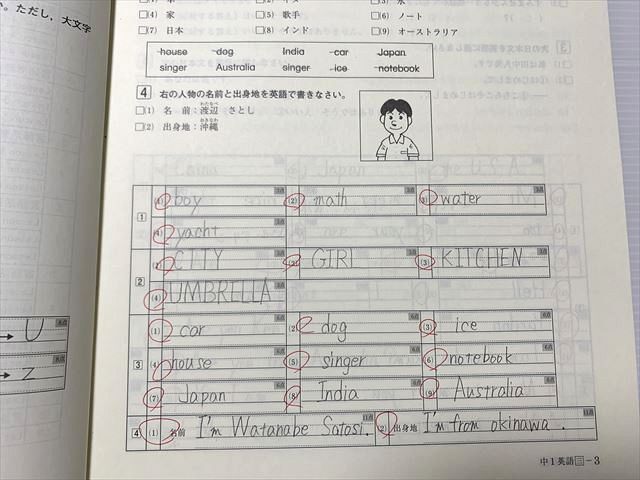 い。ただし，大文字
□(4) 家 □(5) 歌手 □(6) ノート
□(7) 日本 □(8) インド □(9) オーストラリア
house dog India car Japan
singer Australia singer ice notebook
4 右の人物の名前と出身地を英語で書きなさい。
わたなべ
□(1) 名 前：渡辺 さとし
おきなわ
□(2) 出身地：沖縄
1 (1) boy (2) math (3) water
(4) yacht
2 (1) CITY (2) GIRL (3) KITCHEN
(4) UMBRELLA
3 (1) car (2) dog (3) ice
→ U
(4) house (5) singer (6) notebook
→ z
(7) Japan (8) India (9) Australia
4 (1) 名前 I'm Watanabe Satosi. (2) 出身地 I'm from okinawa .
中1英語㊂－3